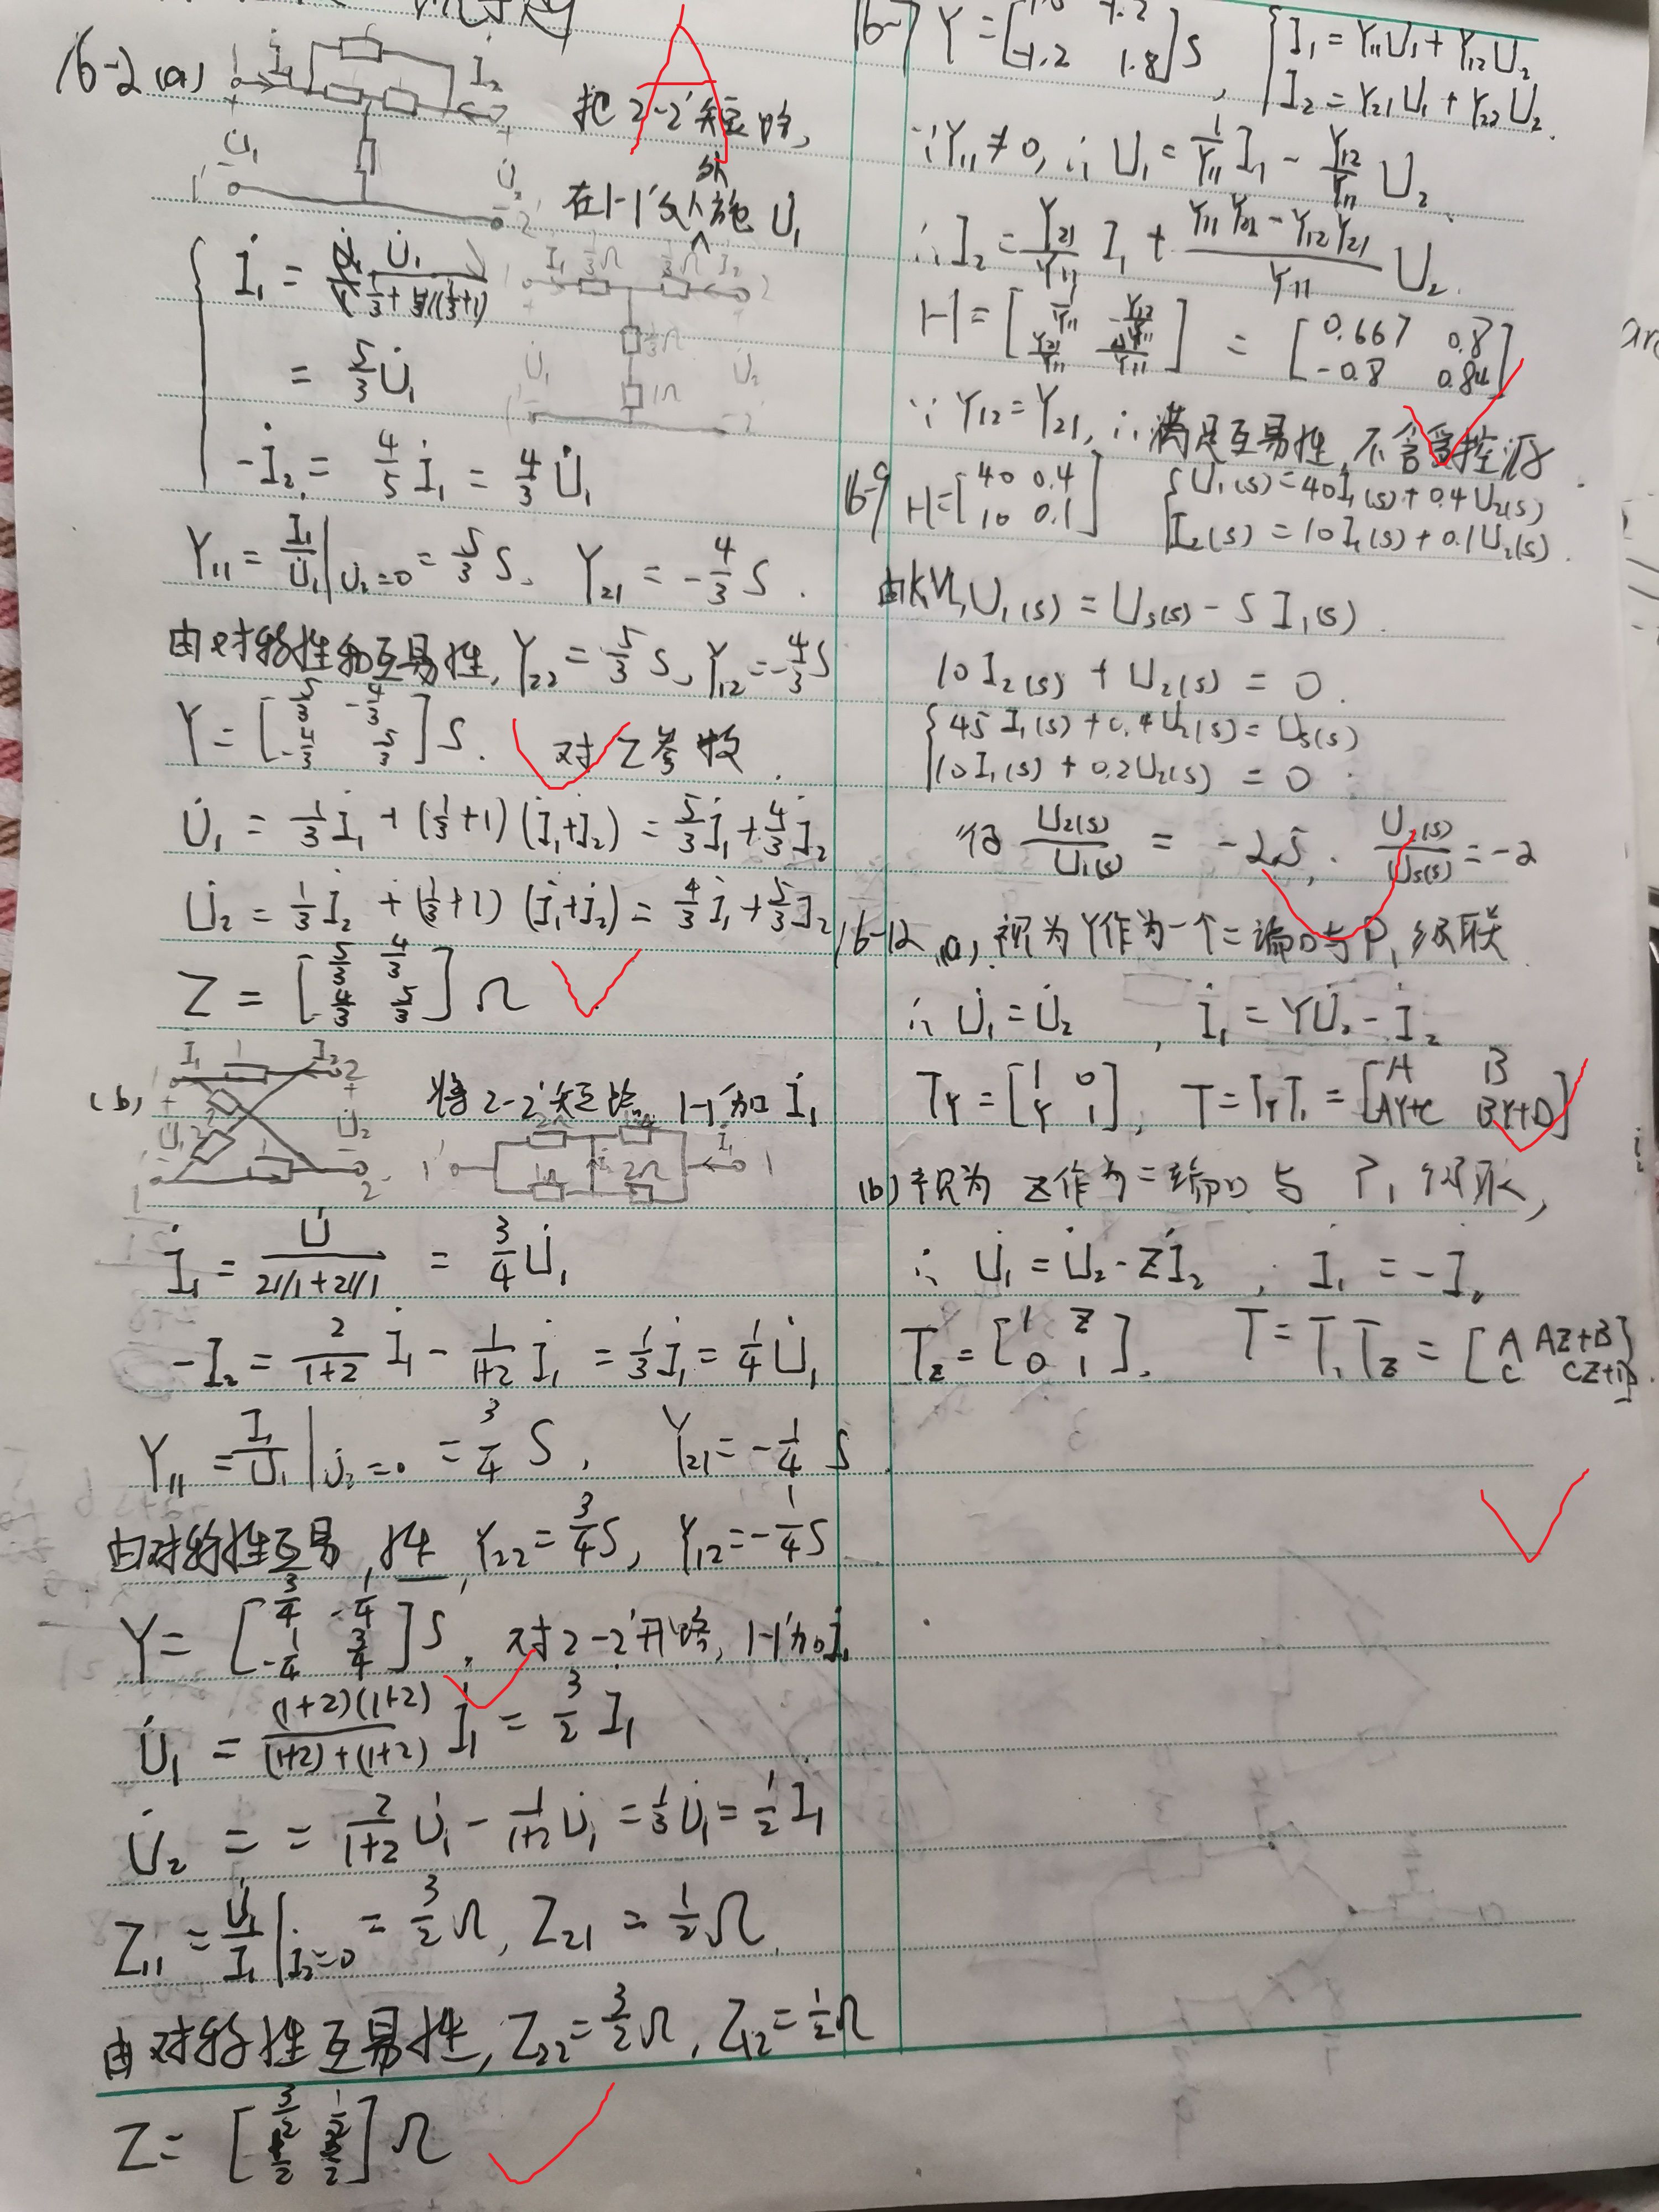 16-2 (a)
把2-2'短路,
在1-1'处外施 U̇₁
İ₁ = U̇₁/(1/3+1/3//(1/3+1))
= 5/3 U̇₁
-İ₂ = 4/5 İ₁ = 4/3 U̇₁
Y₁₁ = İ₁/U̇₁|U̇₂=0 = 5/3 S, Y₂₁ = -4/3 S.
由对称性和互易性, Y₂₂ = 5/3 S, Y₁₂ = -4/3 S
Y = [5/3 -4/3
-4/3 5/3] S. 对Z参数.
U̇₁ = 1/3 İ₁ + (1/3+1)(İ₁+İ₂) = 5/3 İ₁ + 4/3 İ₂
U̇₂ = 1/3 İ₂ + (1/3+1)(İ₁+İ₂) = 4/3 İ₁ + 5/3 İ₂
Z = [5/3 4/3
4/3 5/3] Ω
(b)
将2-2'短路, 1-1'加 İ₁
İ₁ = U̇/(2//1+2//1) = 3/4 U̇₁
-I₂ = 2/(1+2) İ₁ - 1/(1+2) İ₁ = 1/3 İ₁ = 1/4 U̇₁
Y₁₁ = İ₁/U̇₁|U̇₂=0 = 3/4 S, Y₂₁ = -1/4 S
由对称性互易性, Y₂₂ = 3/4 S, Y₁₂ = -1/4 S
Y = [3/4 -1/4
-1/4 3/4] S, 对2-2'开路, 1-1'加 İ₁
U̇₁ = (1+2)(1+2)/((1+2)+(1+2)) İ₁ = 3/2 I₁
U̇₂ = = 2/(1+2) U̇₁ - 1/(1+2) U̇₁ = 1/3 U̇₁ = 1/2 I₁
Z₁₁ = U̇₁/I₁|I₂=0 = 3/2 Ω, Z₂₁ = 1/2 Ω,
由对称性互易性, Z₂₂ = 3/2 Ω, Z₁₂ = 1/2 Ω
Z = [3/2 1/2
1/2 3/2] Ω
A
16-7 Y = [
-1.2 1.8] S, {I₁ = Y₁₁U₁ + Y₁₂U₂
I₂ = Y₂₁U₁ + Y₂₂U₂.
∵ Y₁₁ ≠ 0, ∴ U₁ = 1/Y₁₁ I₁ - Y₁₂/Y₁₁ U₂
∴ I₂ = Y₂₁/Y₁₁ I₁ + (Y₁₁Y₂₂ - Y₁₂Y₂₁)/Y₁₁ U₂.
H = [1/Y₁₁ -Y₁₂/Y₁₁
Y₂₁/Y₁₁ ΔY/Y₁₁] = [0.667 0.8
-0.8 0.84]
∵ Y₁₂ = Y₂₁, ∴ 满足互易性, 不含受控源.
16-9 H = [40 0.4
10 0.1] {U₁(s) = 40I₁(s) + 0.4U₂(s)
I₂(s) = 10I₁(s) + 0.1U₂(s).
由KVL, U₁(s) = Us(s) - 5I₁(s).
10I₂(s) + U₂(s) = 0.
{45I₁(s) + 0.4U₂(s) = Us(s)
10I₁(s) + 0.2U₂(s) = 0.
得 U₂(s)/U₁(s) = -2.5. U₂(s)/Us(s) = -2
16-12 (a). 视为Y作为一个二端口与P₁级联
∴ U̇₁ = U̇₂, İ₁ = YU̇₂ - İ₂
T_Y = [1 0
Y 1], T = T_Y T₁ = [A B
AY+C BY+D]
(b) 视为 Z作为二端口 与 P₁ 级联,
∴ U̇₁ = U̇₂ - Zİ₂, İ₁ = -İ₂
T_Z = [1 Z
0 1], T = T₁T_Z = [A AZ+B
C CZ+D].